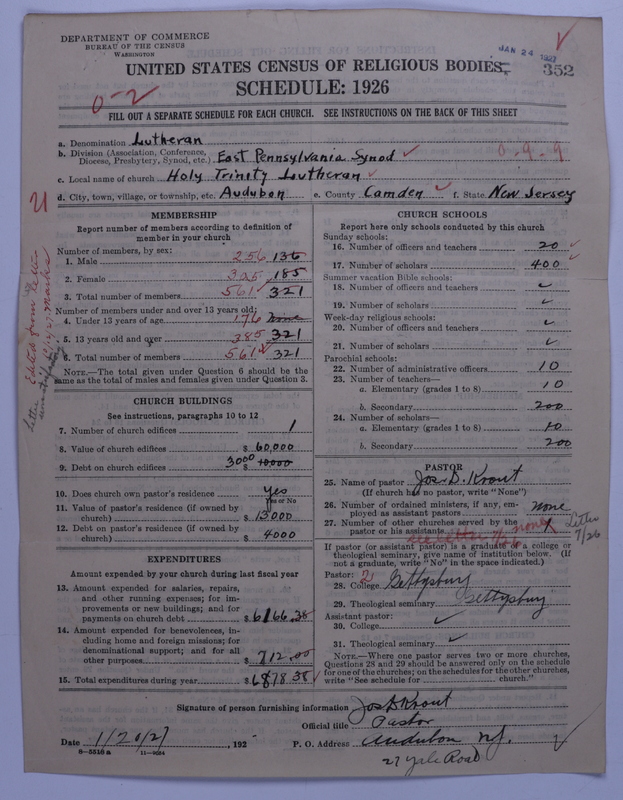 DEPARTMENT OF COMMERCE
BUREAU OF THE CENSUS
WASHINGTON
JAN 24 1927
UNITED STATES CENSUS OF RELIGIOUS BODIES
352
SCHEDULE: 1926
0-2
FILL OUT A SEPARATE SCHEDULE FOR EACH CHURCH. SEE INSTRUCTIONS ON THE BACK OF THIS SHEET
a. Denomination Lutheran
b. Division (Association, Conference, Diocese, Presbytery, Synod, etc.) East Pennsylvania Synod 0-9-9
c. Local name of church Holy Trinity Lutheran
d. City, town, village, or township, etc. Audubon e. County Camden f. State New Jersey
MEMBERSHIP
Report number of members according to definition of
member in your church
Number of members, by sex:
1. Male 256 136
2. Female 305 185
3. Total number of members 561 321
Number of members under and over 13 years old:
4. Under 13 years of age 176 None
5. 13 years old and over 385 321
6. Total number of members 561 321
NOTE.—The total given under Question 6 should be the
same as the total of males and females given under Question 3.
CHURCH BUILDINGS
See instructions, paragraphs 10 to 12
7. Number of church edifices 1
8. Value of church edifices $ 60,000
9. Debt on church edifices 3000 $ 10000
10. Does church own pastor's residence Yes
Yes or No
11. Value of pastor's residence (if owned by
church) $ 13000
12. Debt on pastor's residence (if owned by
church) $ 4000
EXPENDITURES
Amount expended by your church during last fiscal year
13. Amount expended for salaries, repairs,
and other running expenses; for im-
provements or new buildings; and for
payments on church debt $ 6166.38
14. Amount expended for benevolences, in-
cluding home and foreign missions; for
denominational support; and for all
other purposes 712.00
15. Total expenditures during year $ 6878.38
CHURCH SCHOOLS
Report here only schools conducted by this church
Sunday schools:
16. Number of officers and teachers 20
17. Number of scholars 400
Summer vacation Bible schools:
18. Number of officers and teachers
19. Number of scholars
Week-day religious schools:
20. Number of officers and teachers
21. Number of scholars
Parochial schools:
22. Number of administrative officers 10
23. Number of teachers—
a. Elementary (grades 1 to 8) 10
b. Secondary 200
24. Number of scholars—
a. Elementary (grades 1 to 8) 10
b. Secondary 200
PASTOR
25. Name of pastor Jos. D. Krout
(If church has no pastor, write "None")
26. Number of ordained ministers, if any, em-
ployed as assistant pastors none
27. Number of other churches served by the
pastor or his assistants none
see letter
Letter
7/26
If pastor (or assistant pastor) is a graduate of a college or
theological seminary, give name of institution below. (If
not a graduate, write "No" in the space indicated.)
Pastor: 2
28. College Gettysburg
29. Theological seminary Gettysburg
Assistant pastor:
30. College
31. Theological seminary
NOTE.—Where one pastor serves two or more churches,
Questions 28 and 29 should be answered only on the schedule
for one of the churches; on the schedules for the other churches,
write "See schedule for church."
Signature of person furnishing information Jos D Krout
Official title Pastor
Date 1/20/27, 192 P. O. Address Audubon N.J.
8-5518 a 11-9184
27 Yale Road